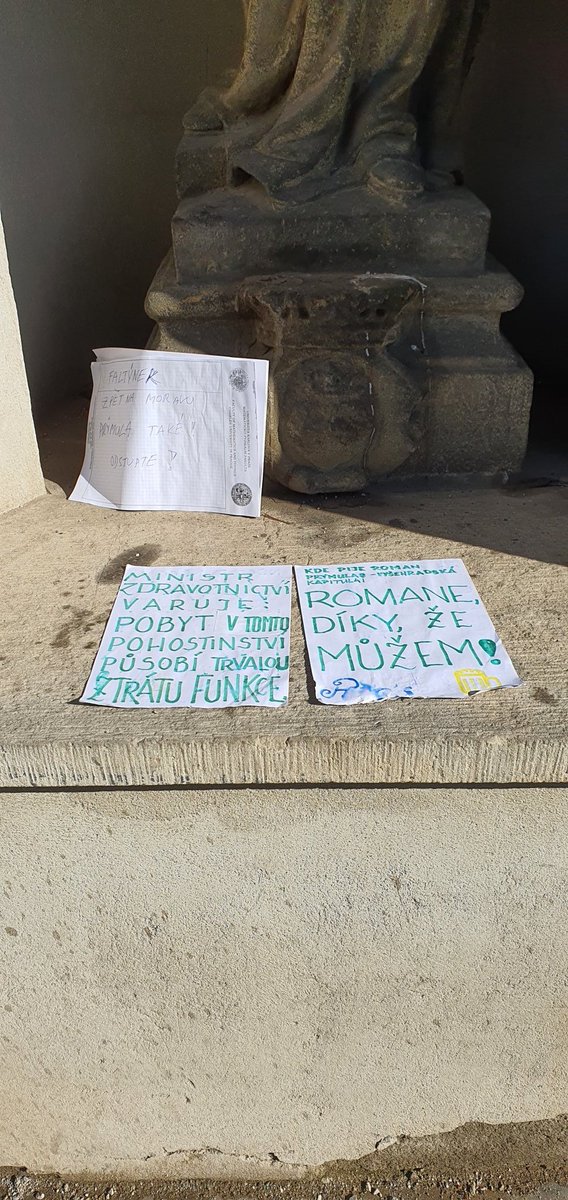 FALTÝNEK
ZPĚT NA MORAVU
PRYMULA TAKÉ!
ODSTUPTE!
MINISTR
ZDRAVOTNICTVÍ
VARUJE:
POBYT V TOMTO
POHOSTINSTVÍ
PŮSOBÍ TRVALOU
ZTRÁTU FUNKCE
KDE PIJE ROMAN
PRYMULA? - VYŠEHRADSKÁ
KAPITULA!
ROMANE,
DÍKY, ŽE
MŮŽEM!